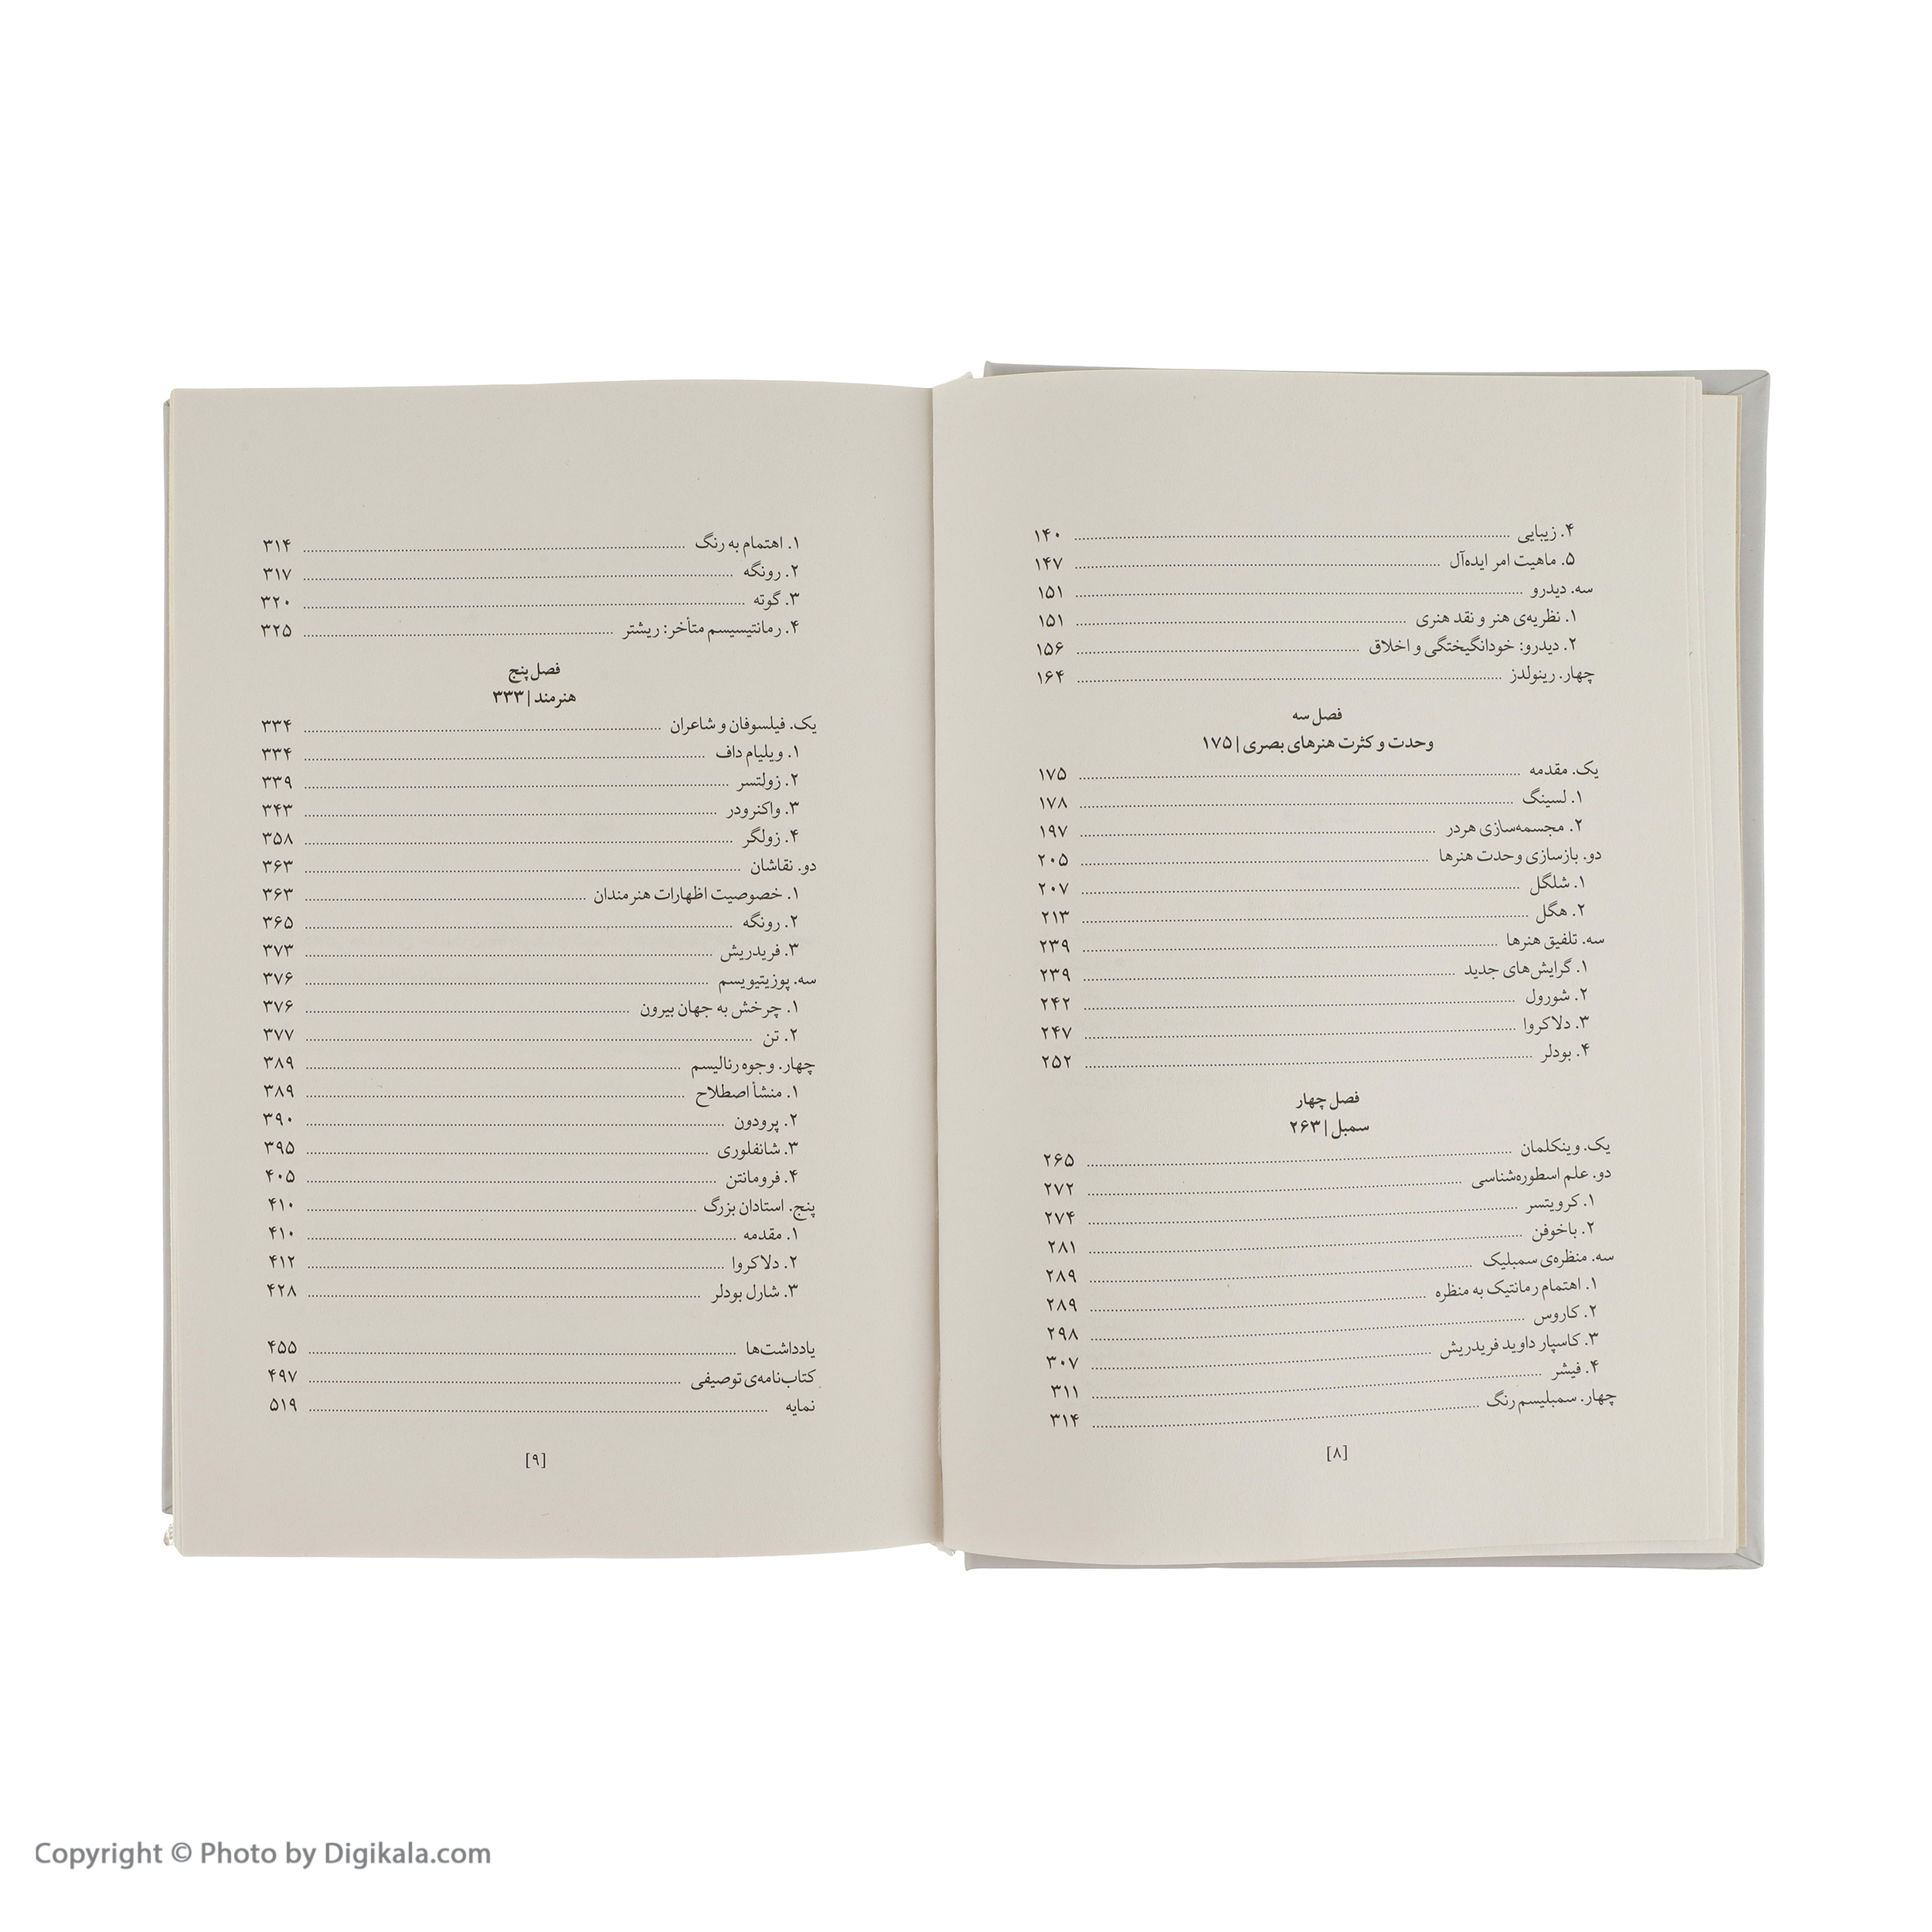 ۴. زیبایی ........ ۱۴۰
۵. ماهیت امر ایده‌آل ........ ۱۴۷
سه. دیدرو ........ ۱۵۱
۱. نظریه‌ی هنر و نقد هنری ........ ۱۵۱
۲. دیدرو: خودانگیختگی و اخلاق ........ ۱۵۶
چهار. رینولدز ........ ۱۶۴
فصل سه
وحدت و کثرت هنرهای بصری | ۱۷۵
یک. مقدمه ........ ۱۷۵
۱. لسینگ ........ ۱۷۸
۲. مجسمه‌سازی هردر ........ ۱۹۷
دو. بازسازی وحدت هنرها ........ ۲۰۵
۱. شلگل ........ ۲۰۷
۲. هگل ........ ۲۱۳
سه. تلفیق هنرها ........ ۲۳۹
۱. گرایش‌های جدید ........ ۲۳۹
۲. شورول ........ ۲۴۲
۳. دلاکروا ........ ۲۴۷
۴. بودلر ........ ۲۵۲
فصل چهار
سمبل | ۲۶۳
یک. وینکلمان ........ ۲۶۵
دو. علم اسطوره‌شناسی ........ ۲۷۲
۱. کرویتسر ........ ۲۷۴
۲. باخوفن ........ ۲۸۱
سه. منظره‌ی سمبلیک ........ ۲۸۹
۱. اهتمام رمانتیک به منظره ........ ۲۸۹
۲. کاروس ........ ۲۹۸
۳. کاسپار داوید فریدریش ........ ۳۰۷
۴. فیشر ........ ۳۱۱
چهار. سمبلیسم رنگ ........ ۳۱۴
[۸]
۱. اهتمام به رنگ ........ ۳۱۴
۲. رونگه ........ ۳۱۷
۳. گوته ........ ۳۲۰
۴. رمانتیسیسم متأخر: ریشتر ........ ۳۲۵
فصل پنج
هنرمند | ۳۳۳
یک. فیلسوفان و شاعران ........ ۳۳۴
۱. ویلیام داف ........ ۳۳۴
۲. زولتسر ........ ۳۳۹
۳. واکنرودر ........ ۳۴۳
۴. زولگر ........ ۳۵۸
دو. نقاشان ........ ۳۶۳
۱. خصوصیت اظهارات هنرمندان ........ ۳۶۳
۲. رونگه ........ ۳۶۵
۳. فریدریش ........ ۳۷۳
سه. پوزیتیویسم ........ ۳۷۶
۱. چرخش به جهان بیرون ........ ۳۷۶
۲. تن ........ ۳۷۷
چهار. وجوه رئالیسم ........ ۳۸۹
۱. منشأ اصطلاح ........ ۳۸۹
۲. پرودون ........ ۳۹۰
۳. شانفلوری ........ ۳۹۵
۴. فرومانتن ........ ۴۰۵
پنج. استادان بزرگ ........ ۴۱۰
۱. مقدمه ........ ۴۱۰
۲. دلاکروا ........ ۴۱۲
۳. شارل بودلر ........ ۴۲۸
یادداشت‌ها ........ ۴۵۵
کتاب‌نامه‌ی توصیفی ........ ۴۹۷
نمایه ........ ۵۱۹
[۹]
Copyright © Photo by Digikala.com